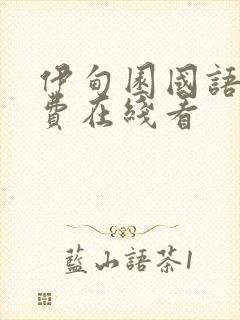 伊甸園國語
費在綫看
藍山語茶1